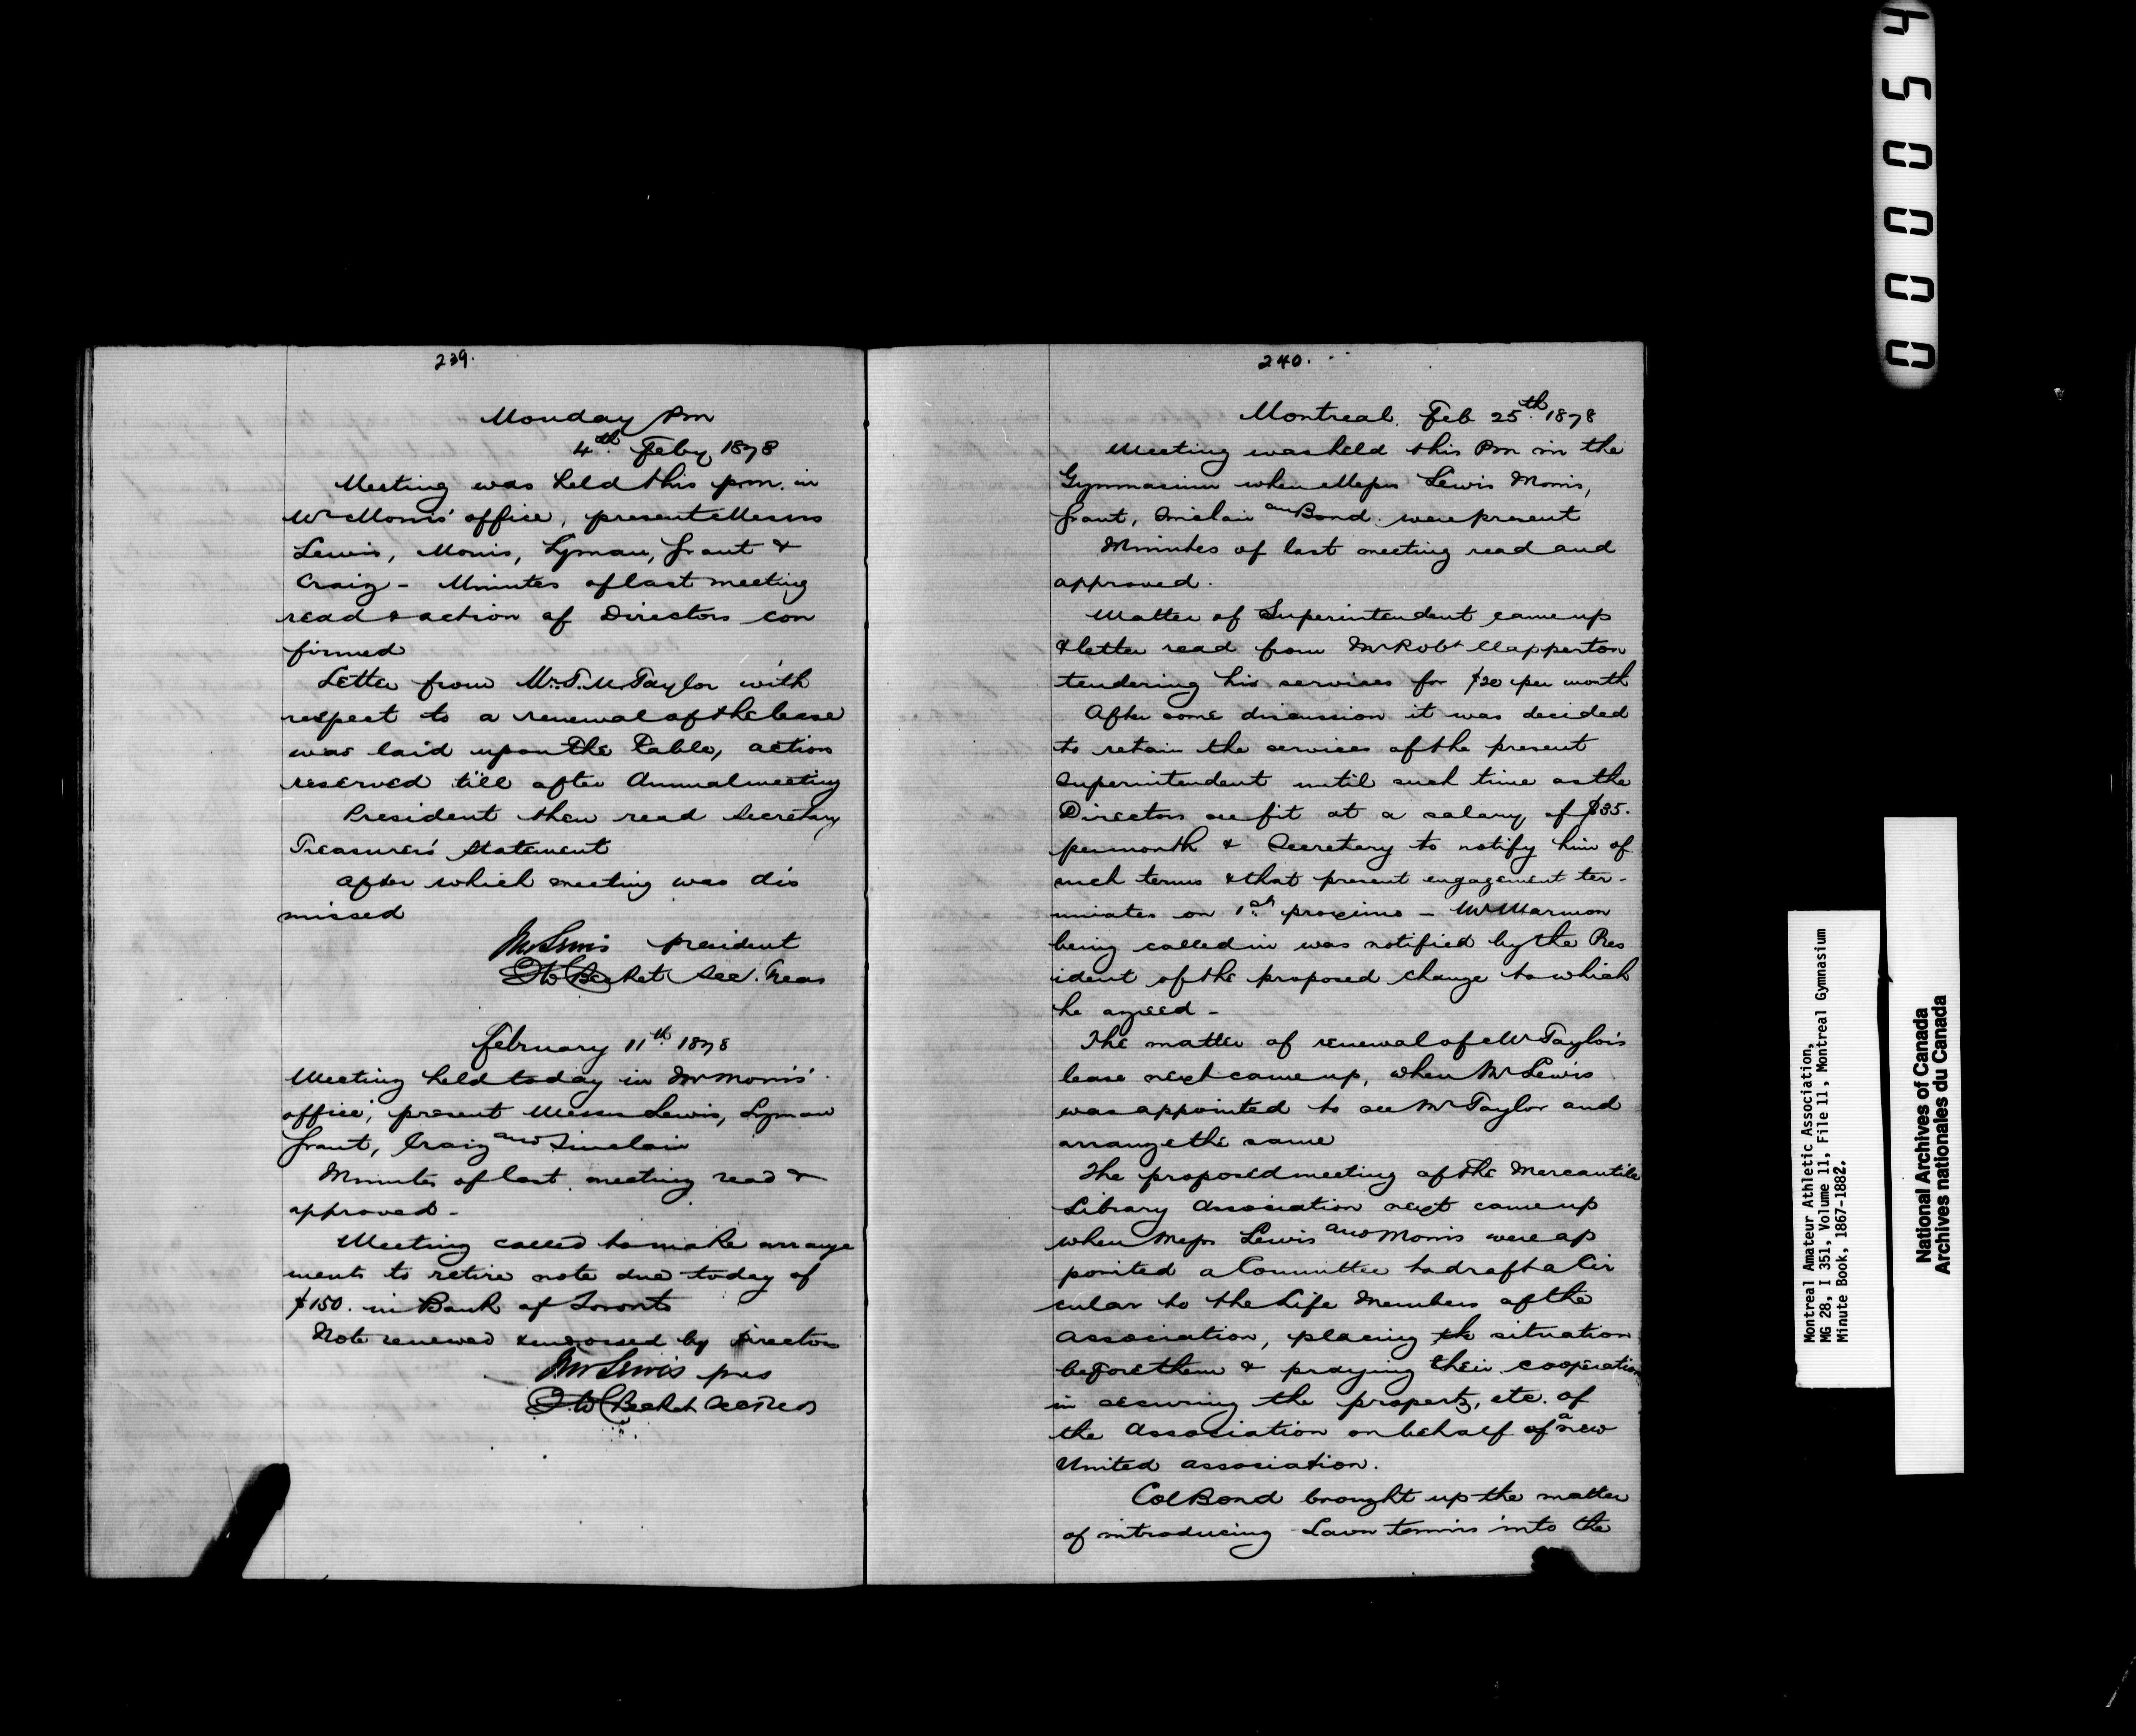 239.
Monday Pm
4th Feby 1878
Meeting was held this p.m. in
Mr Morris' office, present Messrs
Lewis, Morris, Lyman, Grant &
Craig - Minutes of last meeting
read & action of Directors con
firmed
Letter from Mr. T. M. Taylor with
respect to a renewal of the lease
was laid upon the table, action
reserved till after Annual meeting
President then read Secretary
Treasurer's Statement
After which meeting was dis
missed
Lewis president
Becket Sec. Treas
February 11th 1878
Meeting held today in Mr Morris'
office, present Messrs Lewis, Lyman
Grant, Craig and Sinclair
Minutes of last meeting read &
approved -
Meeting called to make arrange
ments to retire note due today of
$150. in Bank of Toronto
Note renewed & endorsed by Directors
Lewis pres
Becket Sec Treas
240.
Montreal. Feb 25th 1878
Meeting was held this Pm in the
Gymnasium when Messrs Lewis Morris,
Grant, Sinclair and Bond were present
Minutes of last meeting read and
approved.
Matter of Superintendent came up
& letter read from Mr Robt Clapperton
tendering his services for $20 per month
After some discussion it was decided
to retain the services of the present
Superintendent until such time as the
Directors see fit at a salary of $35.
per month & Secretary to notify him of
such terms & that present engagement ter-
minates on 1st proximo - Mr Marmon
being called in was notified by the Pres
ident of the proposed change to which
he agreed -
The matter of renewal of Mr Taylor's
lease next came up, when Mr Lewis
was appointed to see Mr Taylor and
arrange the same
The proposed meeting of the Mercantile
Library Association next came up
when Messrs Lewis and Morris were ap
pointed a Committee to draft a Cir
cular to the Life Members of the
Association, placing the situation
before them & praying their cooperation
in securing the property, etc. of
the Association on behalf of a new
United Association.
Col Bond brought up the matter
of introducing Lawn tennis into the
000054
Montreal Amateur Athletic Association,
MG 28, I 351, Volume 11, File 11, Montreal Gymnasium
Minute Book, 1867-1882.
National Archives of Canada
Archives nationales du Canada